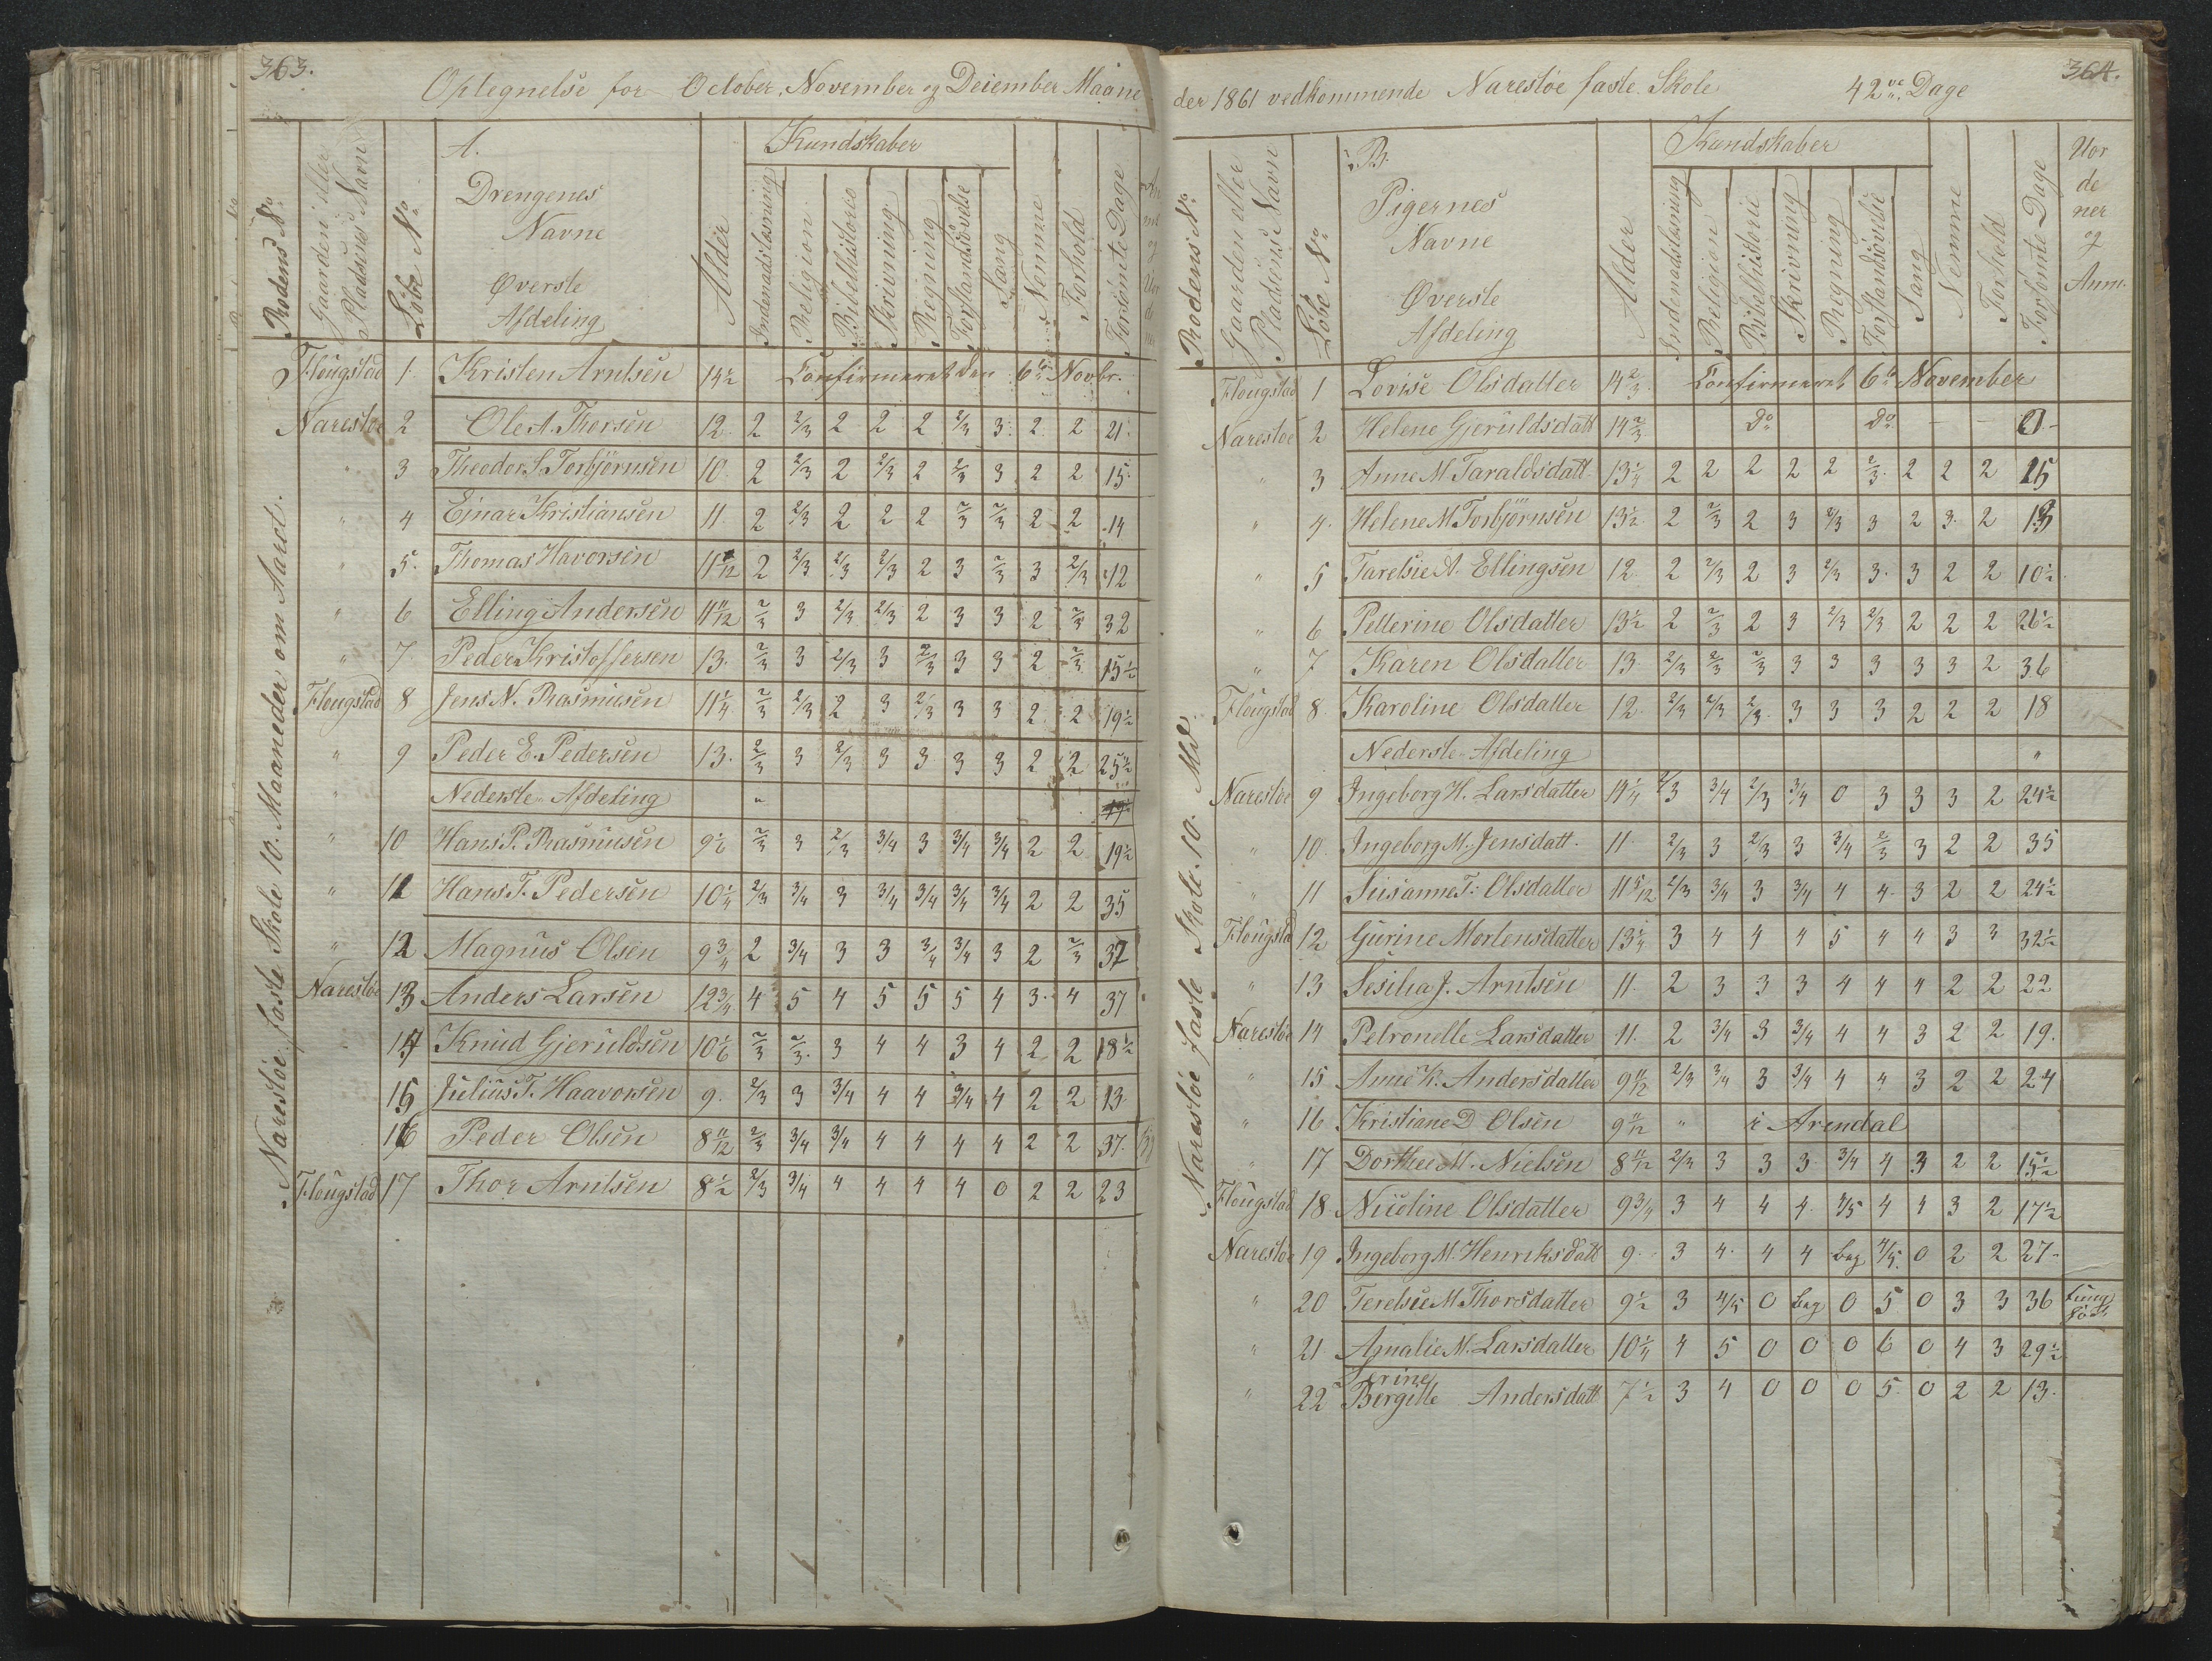 363.
Optegnelse for October, November og Deiember Maane
A.
Kundskaber
Rodens No
Gaarden eller Pladsens Navn
Löbe No
Drengenes Navne
Øverste Afdeling
Alder
Indenadslæsning
Religion
Bibelhistorie
Skrivning
Regning
Forstandsövelse
Sang
Nemme
Forhold
Forsömte Dage
Narestöe faste Skole 10. Maaneder om Aaret.
Flougstad 1 Kristen Arntsen 14½ Confirmeret den 6te Novbr.
Narestöe 2 Ole A. Thorsen 12 2 2/3 2 2 2 2/3 3 2 2 21
" 3 Theodor S. Torbjörnsen 10 2 2/3 2 2/3 2 2/3 3 2 2 15
" 4 Ejnar Kristiansen 11 2 2/3 2 2 2 2/3 2/3 2 2 14
" 5. Thomas Havorsen 2 2/3 2/3 2/3 2 3 2/3 3 2/3 12
" 6 Elling Andersen 11 11/12 2/3 3 2/3 2/3 2 3 3 2 2/3 32
" 7 Peder Kristoffersen 13. 2/3 3 2/3 3 2/3 3 3 2 2/3 15½
Flougstad 8 Jens N. Rasmusen 11¼ 2/3 2/3 2 3 2/3 3 3 2 2 19½
" 9 Peder E. Pedersen 13. 2/3 3 2/3 3 3 3 3 2 2 25½
" Nederste Afdeling "
" 10 Hans P. Rasmusen 2/3 3 2/3 3/4 3 3/4 3/4 2 2 19½
" 11 Hans T. Pedersen 10¼ 2/3 3/4 3 3/4 3/4 3/4 3/4 2 2 35
" 12 Magnus Olsen 9¾ 2 3/4 3 3 3/4 3/4 3 2 2/3 37
Narestöe 13 Anders Larsen 12¾ 4 5 4 5 5 5 4 3 4 37
14 Knud Gjeruldsen 10 1/6 2/3 2/3 3 4 4 3 4 2 2 18½
15 Julius T. Haavorsen 9. 2/3 3 3/4 4 4 3/4 4 2 2 13
16 Peder Olsen 8 11/12 2/3 3/4 3/4 4 4 4 4 2 2 37.
Flougstad 17 Thor Arntsen 8½ 2/3 3/4 4 4 4 4 0 2 2 23
364.
der 1861 vedkommende Narestöe faste Skole 42ve Dage
B.
Kundskaber
Rodens No
Gaarden eller Pladsens Navn
Löbe No
Pigernes Navne
Øverste Afdeling
Alder
Indenadslæsning
Religion
Bibelhistorie
Skrivning
Regning
Forstandsövelse
Sang
Nemme
Forhold
Forsömte Dage
Uor
de
ner
og
Anm.
Narestöe faste Skole. 10. Md.
Flougstad 1 Lovise Olsdatter 14 2/3 Confirmeret 6te November
Narestöe 2 Helene Gjeruldsdatt 14 2/3 Do Do - - 0 -
" 3 Anne M. Taraldsdatt 2 2 2 2 2 2/3 2 2 2 15
" 4. Helene M. Torbjörnsen 13½ 2 2/3 2 3 2/3 3 2 3 2
" 5 Tarelsie A. Ellingsen 12 2 2/3 2 3 2/3 3. 3 2 2 10½
" 6 Petterine Olsdatter 13½ 2 2/3 2 3 2/3 2/3 2 2 2 26½
" 7 Karen Olsdatter 13. 2/3 2/3 2/3 3 3 3 3 3 2 36
Flougstad 8 Karoline Olsdatter 12 2/3 2/3 2/3 3 3 3 2 2 2 18
Nederste Afdeling "
Narestöe 9 Ingeborg H. Larsdatter 2/3 3/4 2/3 3/4 0 3 3 3 2 24½
" 10. Ingeborg M. Jensdatt. 11. 2/3 3 2/3 3 3/4 2/3 3 2 2 35
" 11 Susanne T. Olsdatter 11 5/12 2/3 3/4 3 3/4 4 4 3 2 2 24½
Flougstad 12 Gurine Mortensdatter 13¼ 3 4 4 4 5 4 4 3 3 32½
" 13 Sesilia J. Arntsen 11. 2 3 3 3 4 4 4 2 2 22
Narestöe 14 Petronelle Larsdatter 11. 2 3/4 3 3/4 4 4 3 2 2 19.
" 15 Anne K. Andersdatter 9 11/12 2/3 3/4 3 3/4 4 4 3 2 2 24
" 16 Kristiane D Olsen 9 11/12 " i Arendal
" 17 Dorthee M. Nielsen 8 11/12 2/3 3 3 3 3/4 4 3 2 2 15½
Flougstad 18 Nicoline Olsdatter 9¾ 3 4 4 4 4/5 4 4 3 2 17½
Narestöe 19 Ingeborg M. Henriksdatt 9. 3 4 4 4 beg 4/5 0 2 2 27
" 20 Terelsie M Thorsdatter 9½ 3 4/5 0 beg 0 5 0 3 3 36
" 21 Amalie M. Larsdatter 10¼ 4 5 0 0 0 6 0 4 3 29½
" 22 Serine Bergitte Andersdatt 7½ 3 4 0 0 0 5 0 2 2 13.